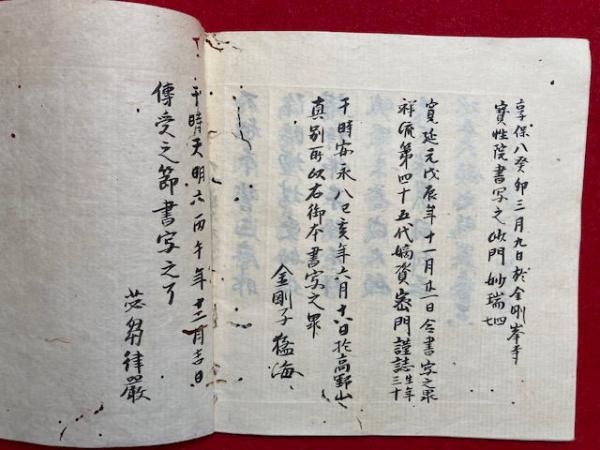 享保八癸卯三月九日於金剛峯寺
寳性院書写之 沙門妙瑞 廿四
寛延元戊辰年十一月廿一日令書写之畢
祥流第四十五代嫡資密門謹誌 生年三十
于時安永八己亥年六月十八日於高野山
真別所以右御本書写之畢
金剛子猛海
于時天明六丙午年十二月吉日
傳受之節書写之了
苾芻律嚴